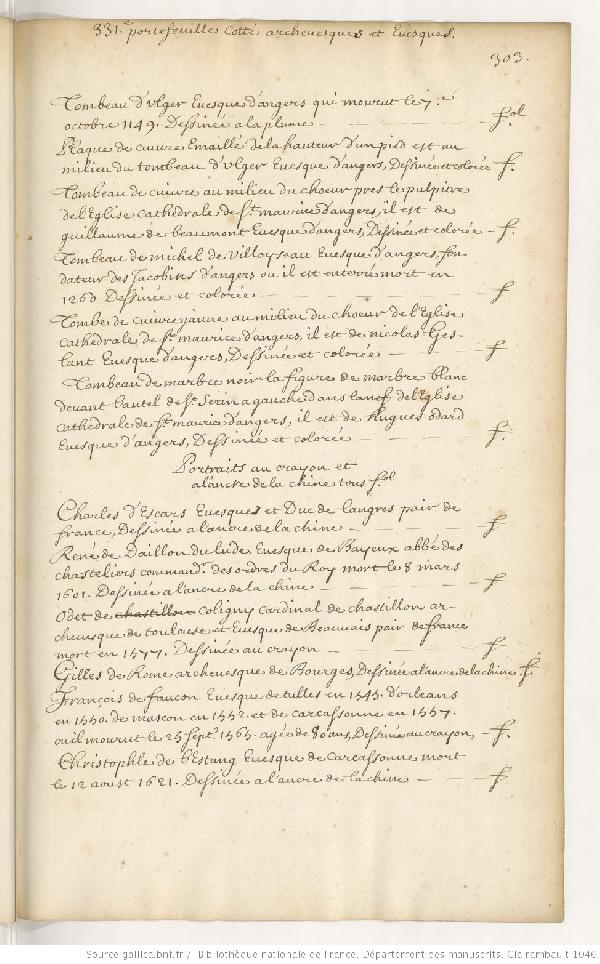 331.e portefeuille Cotté archeuesques et Euesques.
303.
Tombeau d'vlger Euesque d'angers qui mourut le 7.e
octobre 1149. Dessinée a la plume — f.ol
Plaque de cuiure Emaillé de la hauteur d'un pied est au
milieu du tombeau d'vlger Euesque d'angers, Dessinée et colorée — f.
Tombeau de cuivre au milieu du choeur pres le pulpitre
de l'Eglise cathedrale de St. maurice d'angers, il est de
guillaume de beaumont Euesque d'angers, Dessinée et colorée — f.
Tombeau de michel de villoyseau Euesque d'angers, fon-
dateur des Jacobins d'angers ou il est enterré mort en
1260 Dessinée et colorée — f
Tombe de cuivre jaune au milieu du choeur de l'Eglise
cathedrale de St. maurice d'angers, il est de nicolas Ges-
lant Euesque d'angers, Dessinée et colorée — f
Tombeau de marbre noir la figure de marbre blanc
deuant l'autel de St. Serin a gauche dans la nef de l'Eglise
cathedrale de St. maurice d'angers, il est de Hugues odard
Euesque d'angers, Dessinée et colorée — f.
Portraits au crayon et
a l'ancre de la chine tous f.ol
Charles d'Escars Euesques et Duc de langres pair de
france, Dessinée a l'ancre de la chine — f
René de Daillon du lude Euesque de Bayeux abbé des
chasteliers command.r des ordres du Roy mort le 8 mars
1601. Dessinée a l'ancre de la chine — f
Odet de chastillon coligny cardinal de chastillon ar-
cheuesque de toulouse et Euesque de Beauuais pair de france
mort en 1577. Dessinée au crayon — f
Gilles de Rome archeuesque de Bourges, Dessinée a l'ancre de la chine f.
François de faucon Euesque de tulles en 1545. d'orleans
en 1550. de mascon en 1552. et de carcassonne en 1557.
ou il mourut le 25 Sept. 1565. agée de 80 ans, Dessinée au crayon, — f.
Christophle de l'Estang Euesque de Carcassonne mort
le 12 aoust 1621. Dessinée a l'ancre de la chine — f
Source gallica.bnf.fr / Bibliothèque nationale de France. Département des manuscrits. Clairambault 1046